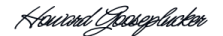 Howard Gooseplucker